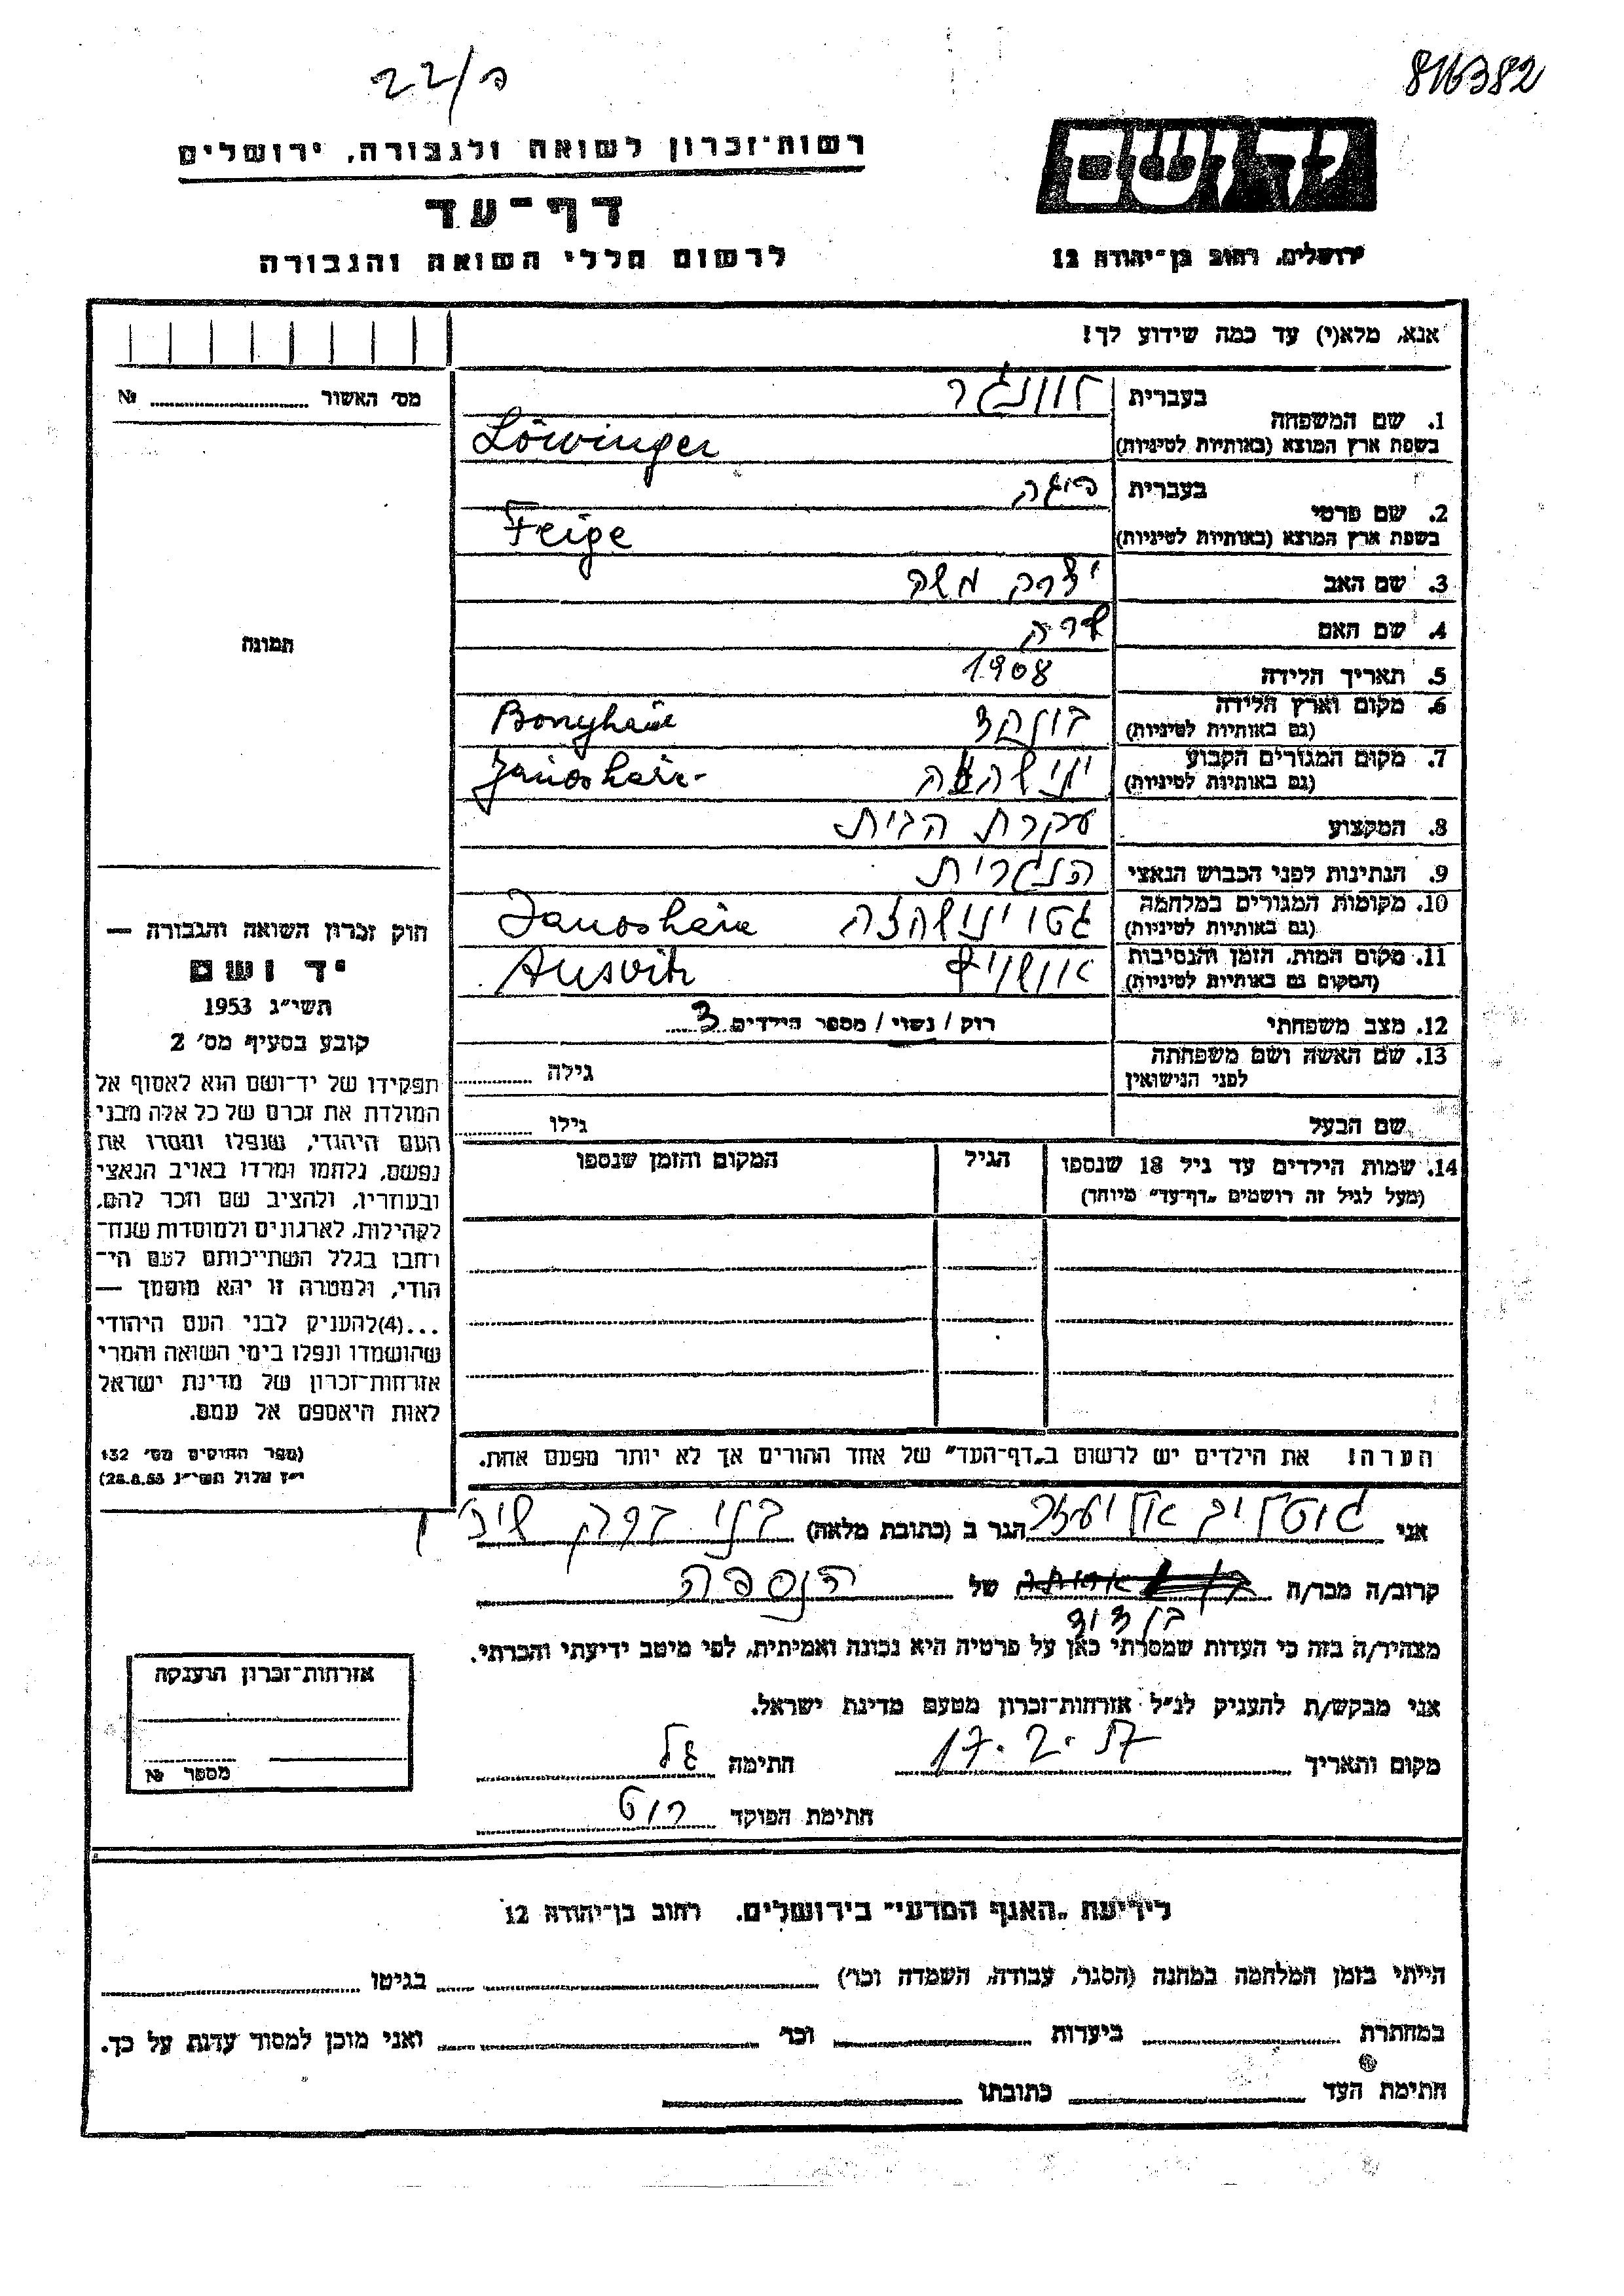 816382
22/ה
יד ושם
רשות־זכרון לשואה ולגבורה, ירושלים
דף־עד
לרשום חללי השואה והגבורה
ירושלים, רחוב בן־יהודה 12
אנא, מלא(י) עד כמה שידוע לך!
מס׳ האשור № 
1. שם המשפחה
בעברית
לוינגר
בשפת ארץ המוצא (באותיות לטיניות)
Löwinger
2. שם פרטי
בעברית
פיגה
בשפת ארץ המוצא (באותיות לטיניות)
Feige
3. שם האב
יצחק משה
4. שם האם
שרה
5. תאריך הלידה
1908
6. מקום וארץ הלידה
(גם באותיות לטיניות)
Bonyhád
7. מקום המגורים הקבוע
(גם באותיות לטיניות)
Janosháza
8. המקצוע
עקרת הבית
9. הנתינות לפני הכבוש הנאצי
הנגרית
10. מקומות המגורים במלחמה
(גם באותיות לטיניות)
גטו ינושהזה Janosháza
11. מקום המות, הזמן והנסיבות
(המקום גם באותיות לטיניות)
אושויץ Ausvitz
12. מצב משפחתי
רווק / נשוי / מספר הילדים 3
13. שם האשה ושם משפחתה
לפני הנישואין
גילה
שם הבעל
גילו
14. שמות הילדים עד גיל 18 שנספו
(מעל לגיל זה רושמים „דף־עד" מיוחד)
הגיל
המקום והזמן שנספו
הערה! את הילדים יש לרשום ב„דף־העד" של אחד ההורים אך לא יותר מפעם אחת.
תמונה
חוק זכרון השואה והגבורה —
יד ושם
תשי״ג 1953
קובע בסעיף מס׳ 2
תפקידו של יד־ושם הוא לאסוף אל
המולדת את זכרם של כל אלה מבני
העם היהודי, שנפלו ומסרו את
נפשם, נלחמו ומרדו באויב הנאצי
ובעוזריו, ולהציב שם וזכר להם,
לקהילות, לארגונים ולמוסדות שנח־
רחבו בגלל השתייכותם לעם הי־
הודי, ולמטרה זו יהא מוסמך —
...(4)להעניק לבני העם היהודי
שהושמדו ונפלו בימי השואה והמרי
אזרחות־זכרון של מדינת ישראל
לאות היאספם אל עמם.
(ספר החוקים מס׳ 132
י״ז אלול תשי״ג 28.8.53)
אני גוטליב אליעזר הגר ב (כתובת מלאה) בני ברק
קרוב/ה מכר/ה בן דוד של הנספה
מצהיר/ה בזה כי העדות שמסרתי כאן על פרטיה היא נכונה ואמיתית, לפי מיטב ידיעתי והכרתי.
אני מבקש/ת להעניק לנ״ל אזרחות־זכרון מטעם מדינת ישראל.
מקום ותאריך 17.2.57 חתימה
חתימת הפוקד
אזרחות־זכרון הוענקה
מספר №
לידיעת „האגף המדעי" בירושלים. רחוב בן־יהודה 12
הייתי בזמן המלחמה במחנה (הסגר, עבודה, השמדה וכו׳) בגיטו
במחתרת ביערות וכו׳ ואני מוכן למסור עדות על כך.
חתימת העד כתובתו